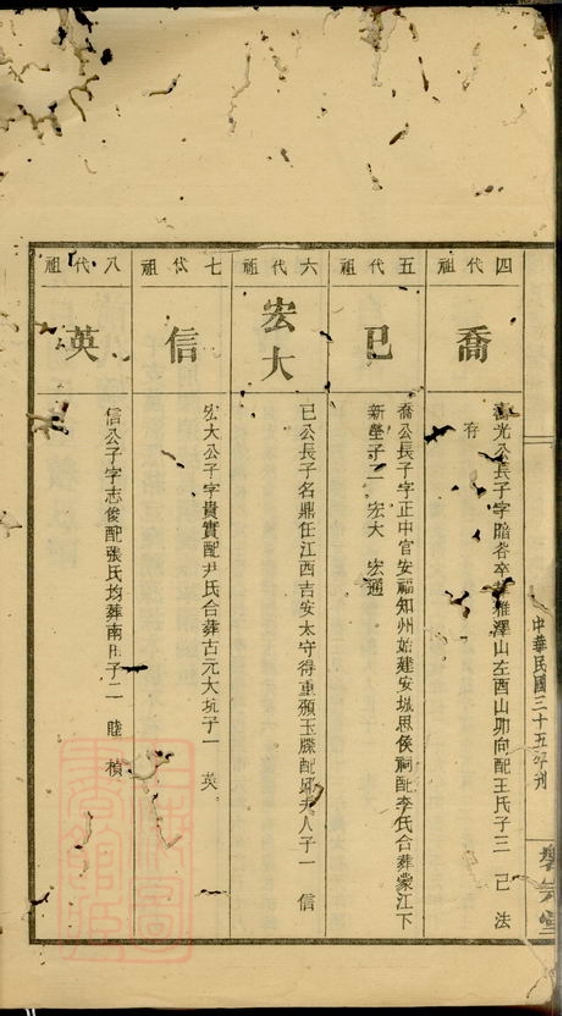 四代祖
喬
光公長子字
卒葬雅澤山左酉山卯向配王氏子三 己 法
存
五代祖
已
喬公長子字正中官安福知州始建安城思侯祠配李氏合葬蒙江下
新塋子二 宏大 宏通
六代祖
宏大
已公長子名鼎任江西吉安太守得重頒玉牒配
夫人子一 信
七代祖
信
宏大公子字貴實配尹氏合葬古元大坑子一 英
八代祖
英
信公子字志俊配張氏均葬南
子二 陸 楨
中華民國三十五年刊
堂